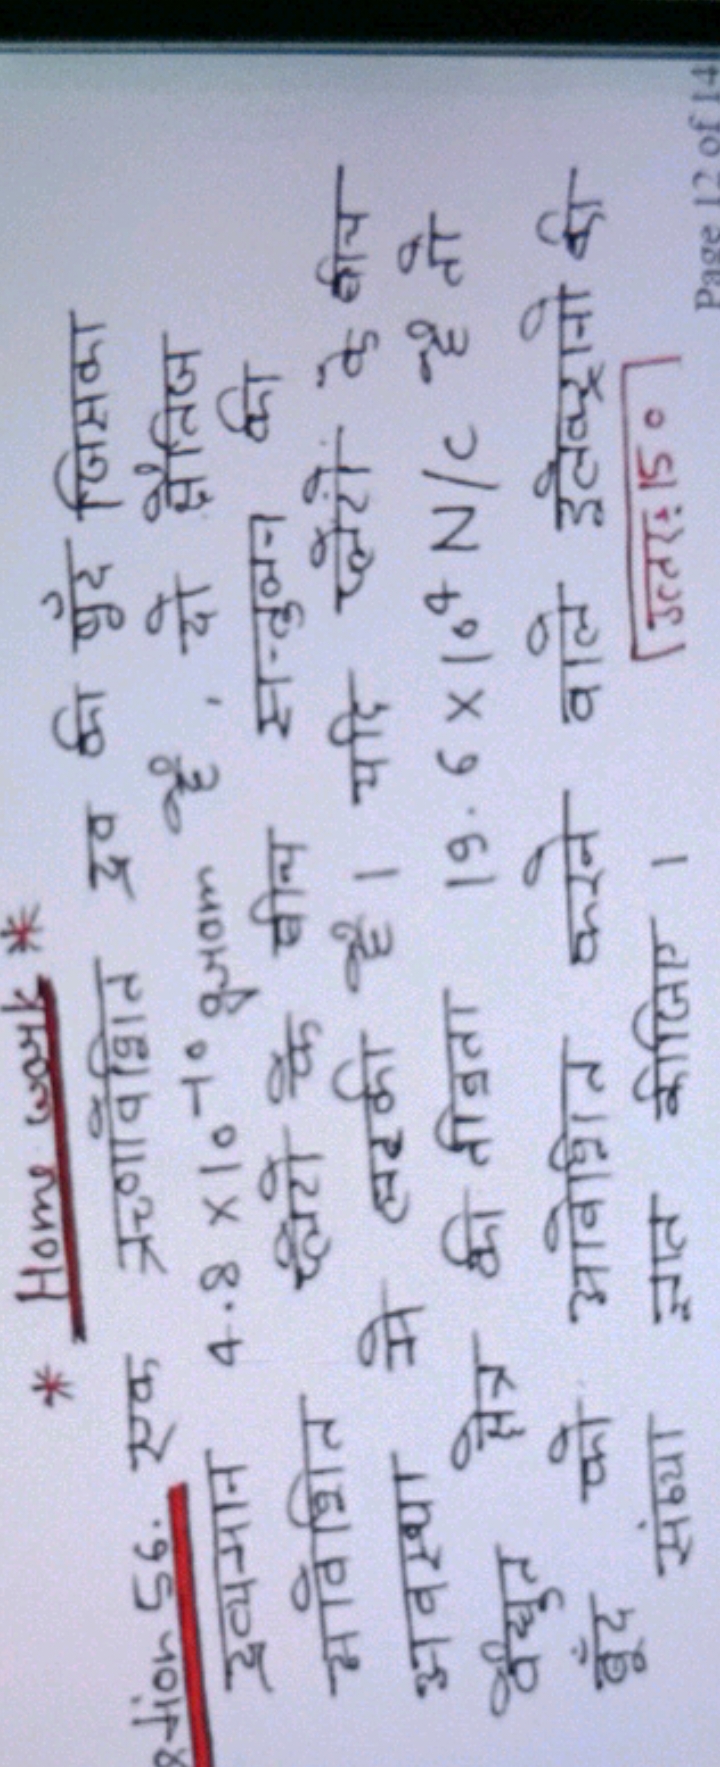 Page 12 of 14
* Home work *
एक ऋणावेशित द्रव की बुँद जिसका
द्रव्यमान 4.8 × 10⁻¹⁰ gram है, दो क्षैतिज
आवेशित प्लेटो के बीच सन्तुलन की
अवस्था मे लटकी है। यदि प्लेटो के बीच
वैद्युत क्षेत्र की तीव्रता 19.6 × 10⁴ N/C है तो
बूँद को आवेशित करने वाले इलेक्ट्रानो की
संख्या ज्ञात कीजिए।
उत्तर: 150